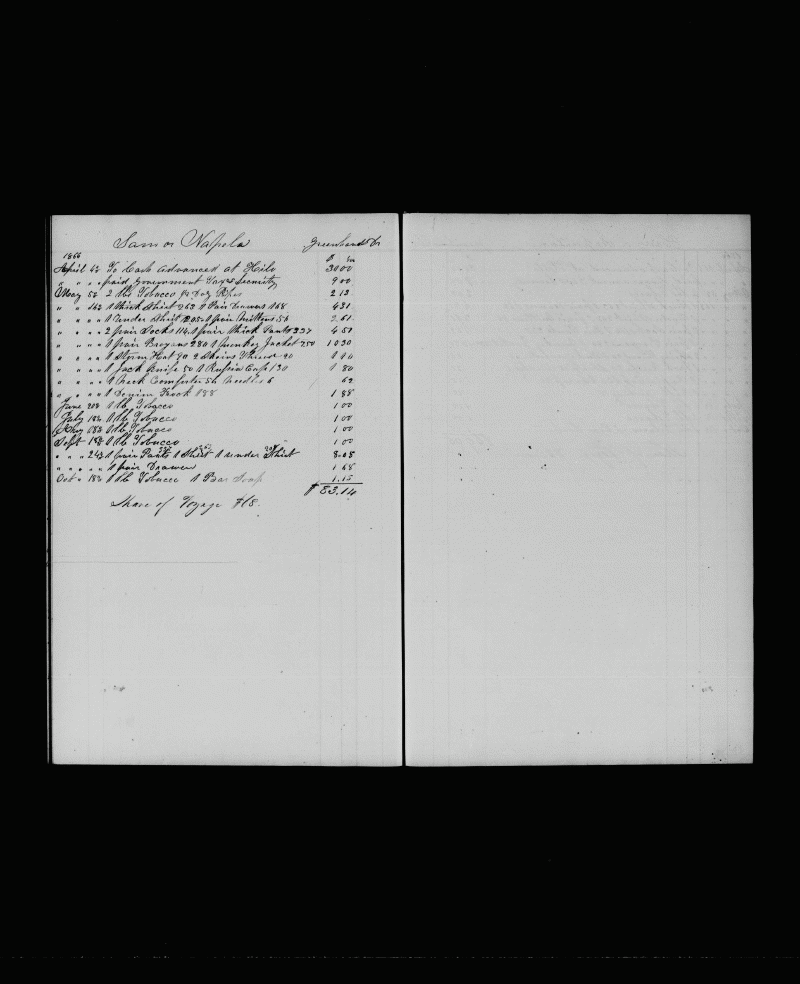 Sam or Nalpela Greenhand Dr
1866 $ cts
April 12 To Cash advanced at Hilo 30 00
" " " paid government Taxes & Security 9 00
May 5th 2 lbs Tobacco Doz Pipes 2 13
" " 16th 1 Thick Shirt 263 1 Pair Drawers 168 4 31
" " " " 1 Under Shirt 205 1 pair Mittens 56 2 61
" " " " 2 pair Socks 114 1 pair Thick Pants 337 4 51
" " " " 1 pair Brogans 280 1 Monkey Jacket 750 10 30
" " " " 1 Storm Hat 90 2 Skeins Thread 1 90
" " " " 1 Jack Knife 50 1 Russia Cap 130 1 80
" " " " 1 Neck Comforter 56 Needles 6 62
" " " " 1 Denim Frock 188 1 88
June 20th 1 lb Tobacco 1 00
July 18th 1 lb Tobacco 1 00
Aug 18th 1 lb Tobacco 1 00
Sept 18th 1 lb Tobacco 1 00
" " " 24th 1 pair Pants 1 Shirt 1 under Shirt 8.05
" " " " 1 pair Drawers 1 68
Oct " 18th 1 lb Tobacco 1 Bar Soap 1.15
$ 83.14
Share of Voyage